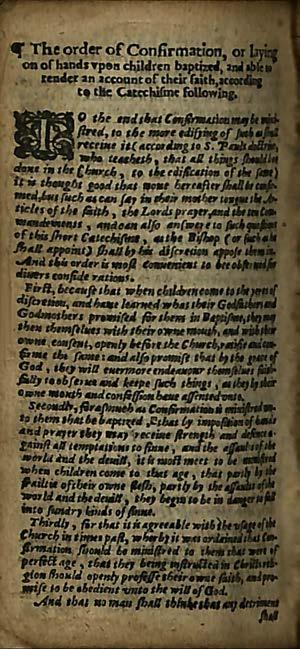 ¶ The order of Confirmation, or laying
on of hands vpon children baptized, and able to
render an account of their faith, according
to the Catechisme following.
TO the end that Confirmation may be mini-
stred, to the more edifying of such as shall
receive it (according to S. Pauls doctrine,
who teacheth, that all things should be
done in the Church, to the edification of the same)
it is thought good that none hereafter shall be confir-
med, but such as can say in their mother tongue the Ar-
ticles of the faith, the Lords prayer, and the ten Com-
mandements, and can also answere to such questions
of this short Catechisme, as the Bishop (or such as he
shall appoint) shall by his discretion appose them in.
And this order is most convenient to bee observed for
divers considerations.
First, because that when children come to the yeres of
discretion, and have learned what their Godfathers and
Godmothers promised for them in Baptisme, they may
then themselves with their owne mouth, and with their
owne consent, openly before the Church, ratifie and con-
firme the same: and also promise that by the grace of
God, they will evermore endeavour themselves faith-
fully to observe and keepe such things, as they by their
owne mouth and confession have assented unto.
Secondly, forasmuch as Confirmation is ministred un-
to them that be baptized, that by imposition of hands
and prayer they may receive strength and defence a-
gainst all temptations to sinne, and the assaults of the
world and the devill, it is most meet to be ministred
when children come to that age, that partly by the
frailtie of their owne flesh, partly by the assaults of the
world and the devill, they begin to be in danger to fall
into sundry kinds of sinne.
Thirdly, for that it is agreeable with the usage of the
Church in times past, wherby it was ordained that Con-
firmation should be ministred to them that were of
perfect age, that they being instructed in Christs reli-
gion should openly professe their owne faith, and pro-
mise to be obedient unto the will of God.
And that no man shall thinke that any detriment
shall